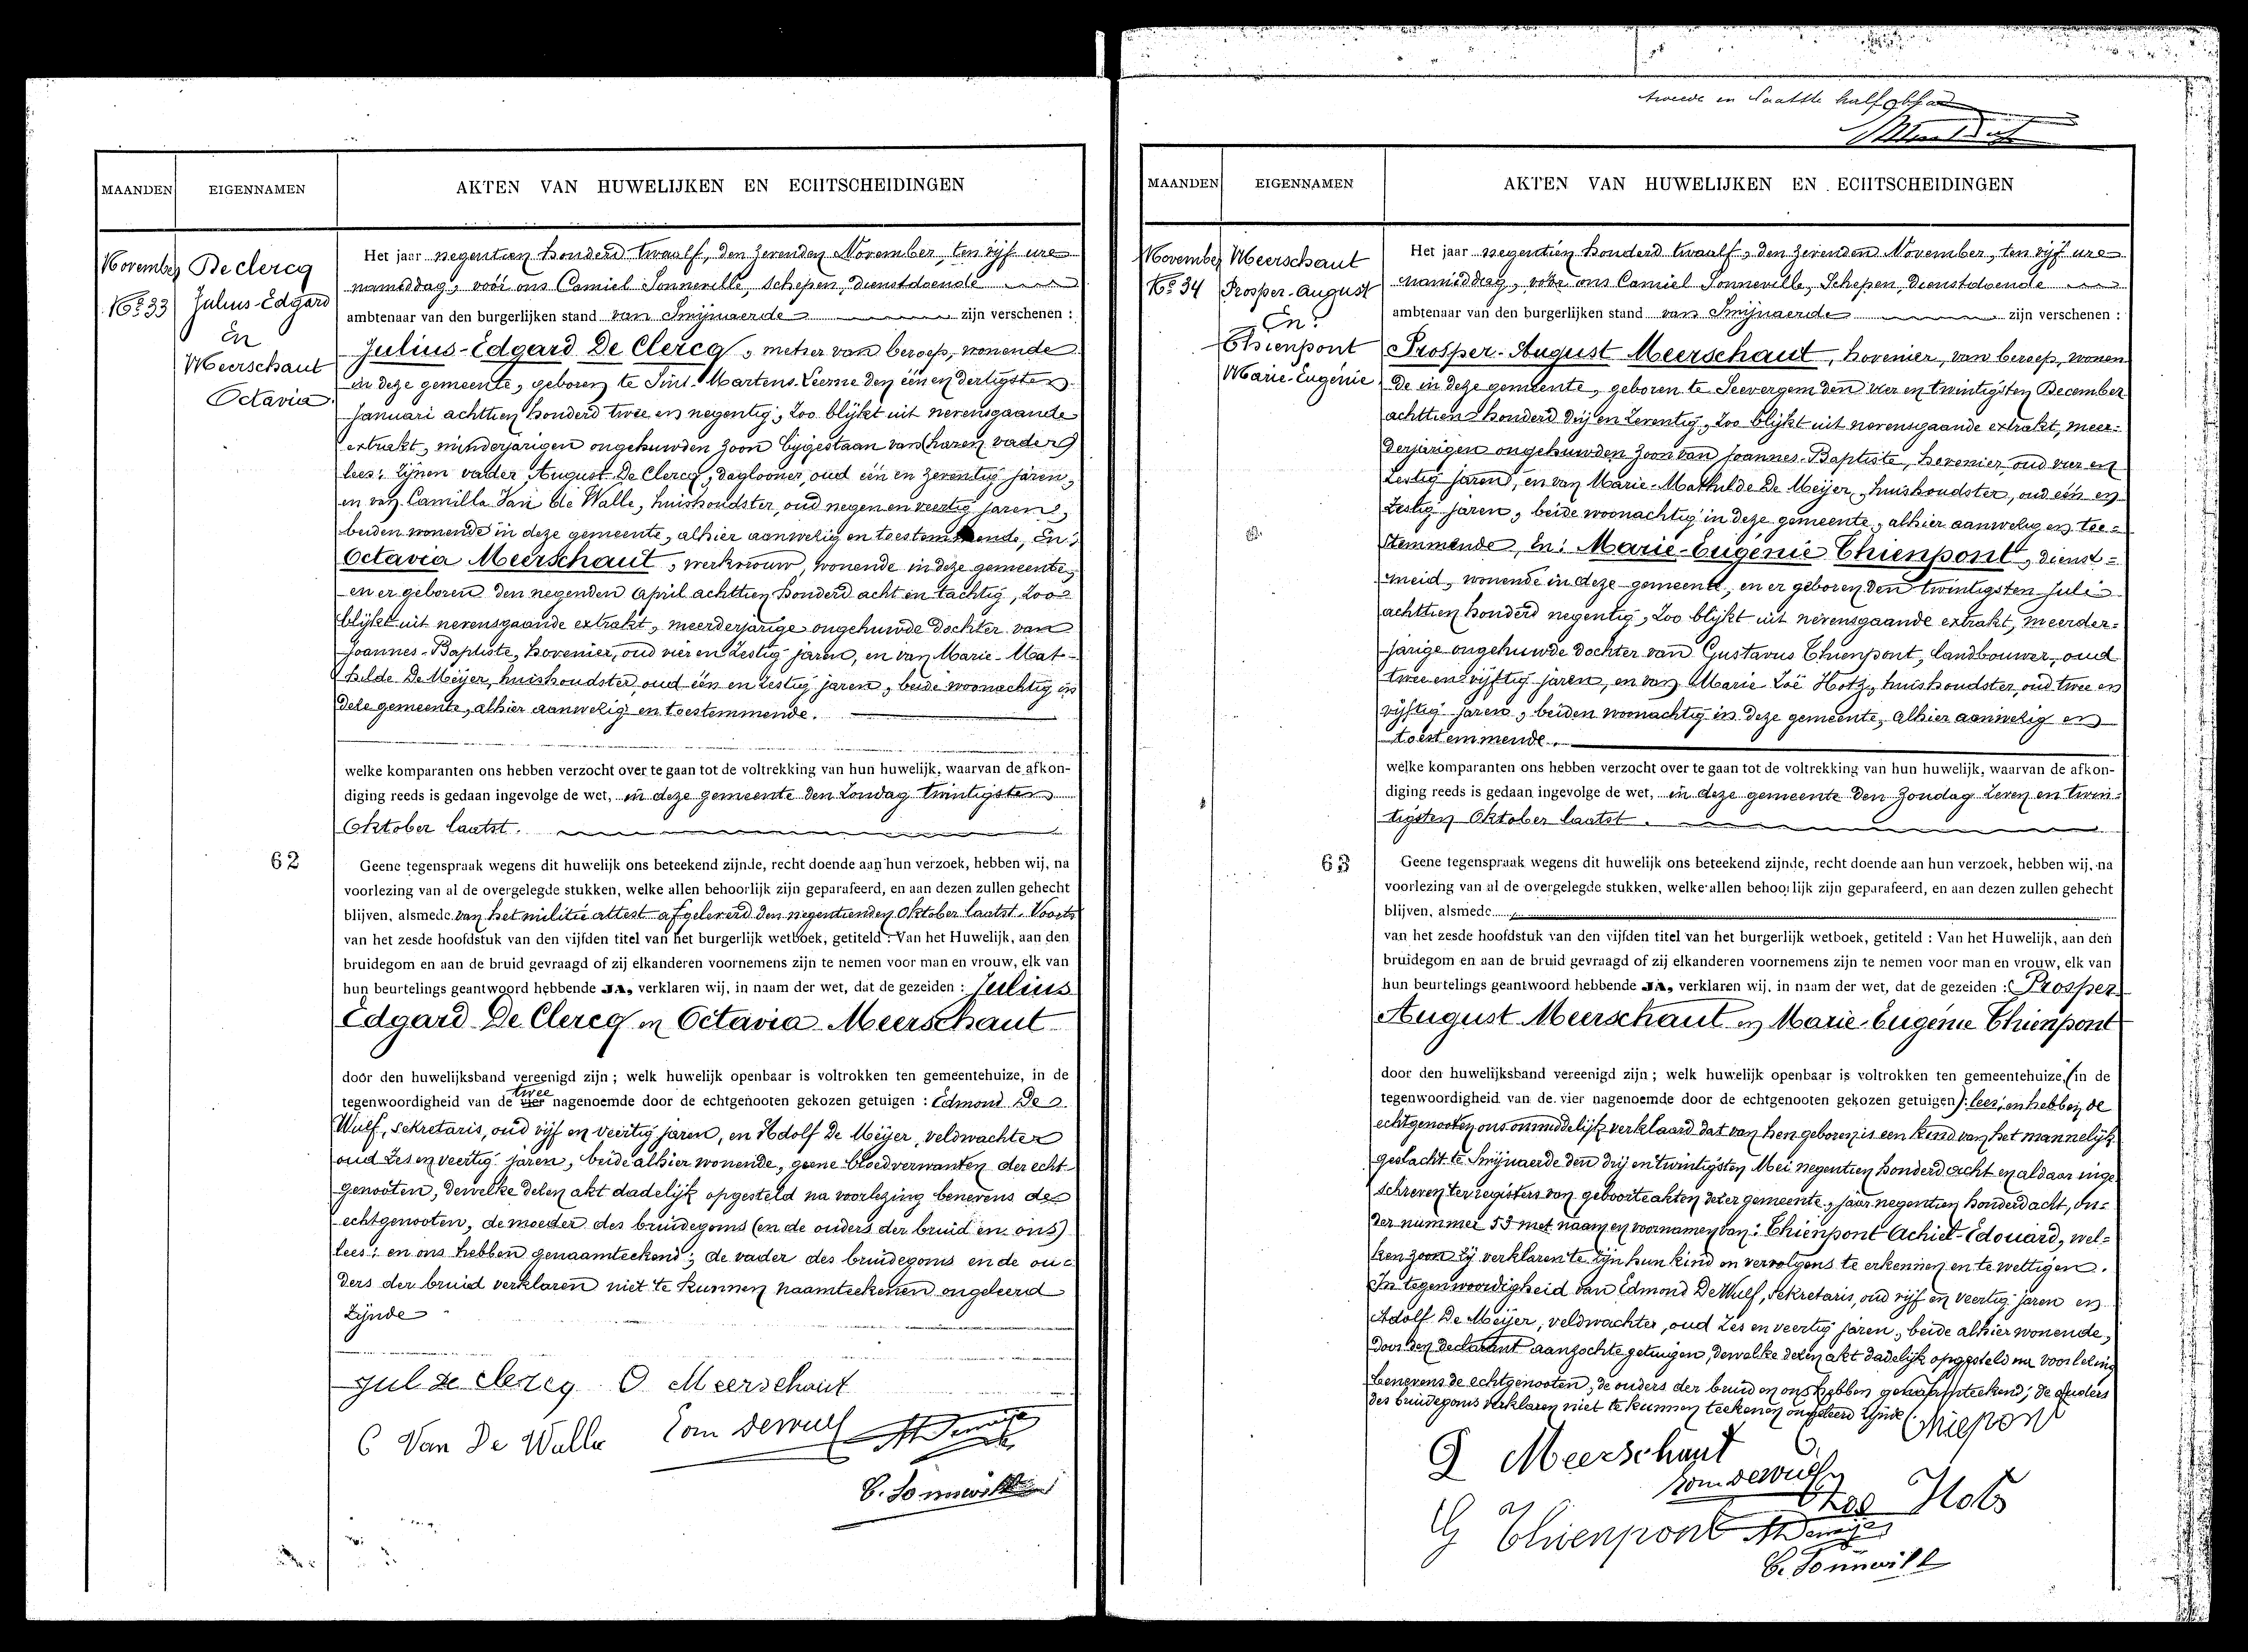 MAANDEN EIGENNAMEN AKTEN VAN HUWELIJKEN EN ECHTSCHEIDINGEN
November
No 33
De Clercq
Julius-Edgard
En
Meerschaut
Octavia
Het jaar negentien honderd twaalf, den zevenden November, ten vijf ure
namiddag, vóór ons Camiel Sonneville, Schepen, dienstdoende
ambtenaar van den burgerlijken stand van Smijnaerde zijn verschenen :
Julius-Edgard De Clercq, metser van beroep, wonende
in deze gemeente, geboren te Sint-Martens-Leerne den één en dertigsten
Januari achttien honderd twee en negentig, zoo blijkt uit nevensgaande
extrakt, minderjarigen ongehuwden zoon bijgestaan van (haren vader)
lees: zijnen vader August De Clercq, daglooner, oud één en zeventig jaren,
en van Camilla Van de Walle, huishoudster, oud negen en veertig jaren,
beiden wonende in deze gemeente, alhier aanwezig en toestemmende, En:
Octavia Meerschaut, werkvrouw, wonende in deze gemeente,
en er geboren den negenden April achttien honderd acht en tachtig, zoo
blijkt uit nevensgaande extrakt, meerderjarige ongehuwde dochter van
Joannes-Baptiste, hovenier, oud vier en zestig jaren, en van Marie-Mat-
hilde De Meijer, huishoudster, oud één en zestig jaren, beide woonachtig in
deze gemeente, alhier aanwezig en toestemmende.
welke komparanten ons hebben verzocht over te gaan tot de voltrekking van hun huwelijk, waarvan de afkon-
diging reeds is gedaan ingevolge de wet, in deze gemeente den Zondag twintigsten
Oktober laatst.
62
Geene tegenspraak wegens dit huwelijk ons beteekend zijnde, recht doende aan hun verzoek, hebben wij, na
voorlezing van al de overgelegde stukken, welke allen behoorlijk zijn geparafeerd, en aan dezen zullen gehecht
blijven, alsmede van het militie attest afgeleverd den negentienden Oktober laatst. Voorts
van het zesde hoofdstuk van den vijfden titel van het burgerlijk wetboek, getiteld : Van het Huwelijk, aan den
bruidegom en aan de bruid gevraagd of zij elkanderen voornemens zijn te nemen voor man en vrouw, elk van
hun beurtelings geantwoord hebbende JA, verklaren wij, in naam der wet, dat de gezeiden : Julius
Edgard De Clercq en Octavia Meerschaut
door den huwelijksband vereenigd zijn ; welk huwelijk openbaar is voltrokken ten gemeentehuize, in de
tegenwoordigheid van de vier twee nagenoemde door de echtgenooten gekozen getuigen : Edmond De
Wulf, sekretaris, oud vijf en veertig jaren, en Adolf De Meijer, veldwachter
oud zes en veertig jaren, beide alhier wonende, geene bloedverwanten der echt-
genooten, dewelke dezen akt dadelijk opgesteld na voorlezing benevens de
echtgenooten, de moeder des bruidegoms (en de ouders der bruid en ons)
lees: en ons hebben genaamteekend; de vader des bruidegoms en de ou-
ders der bruid verklaren niet te kunnen naamteekenen ongeleerd
zijnde
Jul de Clercq O Meerschaut
C Van De Walle Edm Dewulf ADemeije
C. Sonneville
tweede en laatste halfblad
MAANDEN EIGENNAMEN AKTEN VAN HUWELIJKEN EN ECHTSCHEIDINGEN
November
No 34
Meerschaut
Prosper-August
En:
Thienpont
Marie-Eugénie
Het jaar negentien honderd twaalf, den zevenden November, ten vijf ure
namiddag, vóór ons Camiel Sonneville, Schepen, dienstdoende
ambtenaar van den burgerlijken stand van Smijnaerde zijn verschenen :
Prosper-August Meerschaut, hovenier, van beroep, wonen
de in deze gemeente, geboren te Seevergem den vier en twintigsten December
achttien honderd drij en zeventig, zoo blijkt uit nevensgaande extrakt, meer-
derjarigen ongehuwden zoon van Joannes-Baptiste, hovenier, oud vier en
zestig jaren, en van Marie-Mathilde De Meijer, huishoudster, oud één en
zestig jaren, beide woonachtig in deze gemeente, alhier aanwezig en toe-
stemmende, En: Marie-Eugénie Thienpont, dienst-
meid, wonende in deze gemeente, en er geboren den twintigsten Juli
achttien honderd negentig, zoo blijkt uit nevensgaande extrakt, meerder-
jarige ongehuwde dochter van Gustavus Thienpont, landbouwer, oud
twee en vijftig jaren, en van Marie Zoë Hotz, huishoudster, oud twee en
vijftig jaren, beiden woonachtig in deze gemeente, alhier aanwezig en
toestemmende.
welke komparanten ons hebben verzocht over te gaan tot de voltrekking van hun huwelijk, waarvan de afkon-
diging reeds is gedaan ingevolge de wet, in deze gemeente den Zondag zeven en twin-
tigsten Oktober laatst.
63
Geene tegenspraak wegens dit huwelijk ons beteekend zijnde, recht doende aan hun verzoek, hebben wij, na
voorlezing van al de overgelegde stukken, welke allen behoorlijk zijn geparafeerd, en aan dezen zullen gehecht
blijven, alsmede
van het zesde hoofdstuk van den vijfden titel van het burgerlijk wetboek, getiteld : Van het Huwelijk, aan den
bruidegom en aan de bruid gevraagd of zij elkanderen voornemens zijn te nemen voor man en vrouw, elk van
hun beurtelings geantwoord hebbende JA, verklaren wij, in naam der wet, dat de gezeiden : Prosper
August Meerschaut en Marie-Eugénie Thienpont
door den huwelijksband vereenigd zijn ; welk huwelijk openbaar is voltrokken ten gemeentehuize, (in de
tegenwoordigheid van de vier nagenoemde door de echtgenooten gekozen getuigen): lees: en hebben de
echtgenooten ons onmiddelijk verklaard dat van hen geboren is een kind van het mannelijk
geslacht te Smijnaerde den drij en twintigsten Mei negentien honderd acht en aldaar inge
schreven ten registers van geboorteakten dezer gemeente, jaar negentien honderd acht, on-
der nummer 53 met naam en voornamen van: Thienpont Achiel-Edouard, wel-
ken zoon zij verklaren te zijn hun kind en vervolgens te erkennen en te wettigen.
In tegenwoordigheid van Edmond De Wulf, sekretaris, oud vijf en veertig jaren en
Adolf De Meijer, veldwachter, oud zes en veertig jaren, beide alhier wonende,
door den declarant aanzochte getuigen, dewelke dezen akt dadelijk opgesteld na voorlezing
benevens de echtgenooten, de ouders der bruid en ons hebben genaamteekend; de ouders
des bruidegoms verklaren niet te kunnen teekenen ongeleerd zijnde
P Meerschaut E. Thiepont
Edm Dewulf
Zoe Hots
G Thienpont ADemeije
C. Sonneville